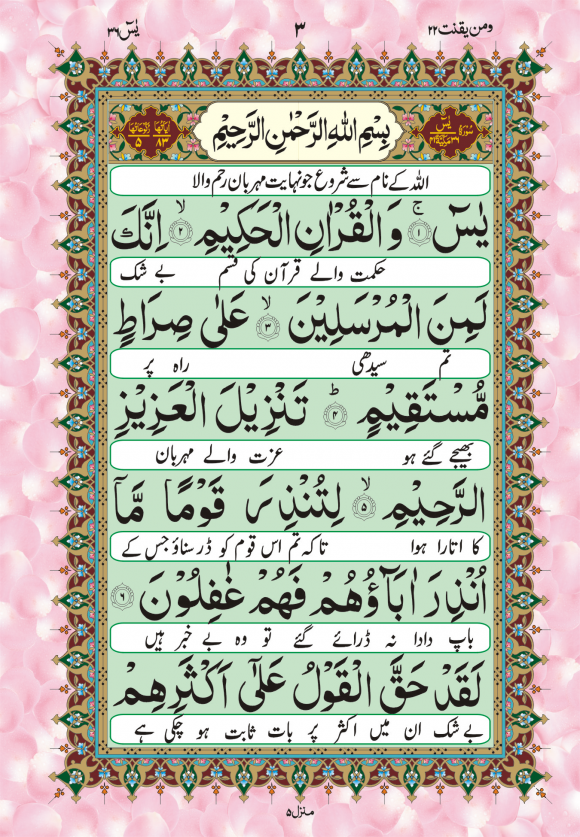 ومن یقنت ۲۲ ۳ یٰسٓ ۳۶
سورۃ یٰسٓ بِسْمِ اللهِ الرَّحْمٰنِ الرَّحِيْمِ اٰیاتھا ۸۳ رکوعاتھا ۵
اللہ کے نام سے شروع جو نہایت مہربان رحم والا
يٰسٓ ۚ ۝۱ وَ الْقُرْاٰنِ الْحَكِيْمِ ۙ ۝۲ اِنَّكَ
حکمت والے قرآن کی قسم بے شک
لَمِنَ الْمُرْسَلِيْنَ ۙ ۝۳ عَلٰى صِرَاطٍ
تم سیدھی راہ پر
مُّسْتَقِيْمٍ ؕ ۝۴ تَنْزِيْلَ الْعَزِيْزِ
بھیجے گئے ہو عزت والے مہربان
الرَّحِيْمِ ۙ ۝۵ لِتُنْذِرَ قَوْمًا مَّاۤ
کا اتارا ہوا تاکہ تم اس قوم کو ڈر سناؤ جس کے
اُنْذِرَ اٰبَآؤُهُمْ فَهُمْ غٰفِلُوْنَ ۝۶
باپ دادا نہ ڈرائے گئے تو وہ بے خبر ہیں
لَقَدْ حَقَّ الْقَوْلُ عَلٰۤى اَكْثَرِهِمْ
بے شک ان میں اکثر پر بات ثابت ہو چکی ہے
منزل ۵